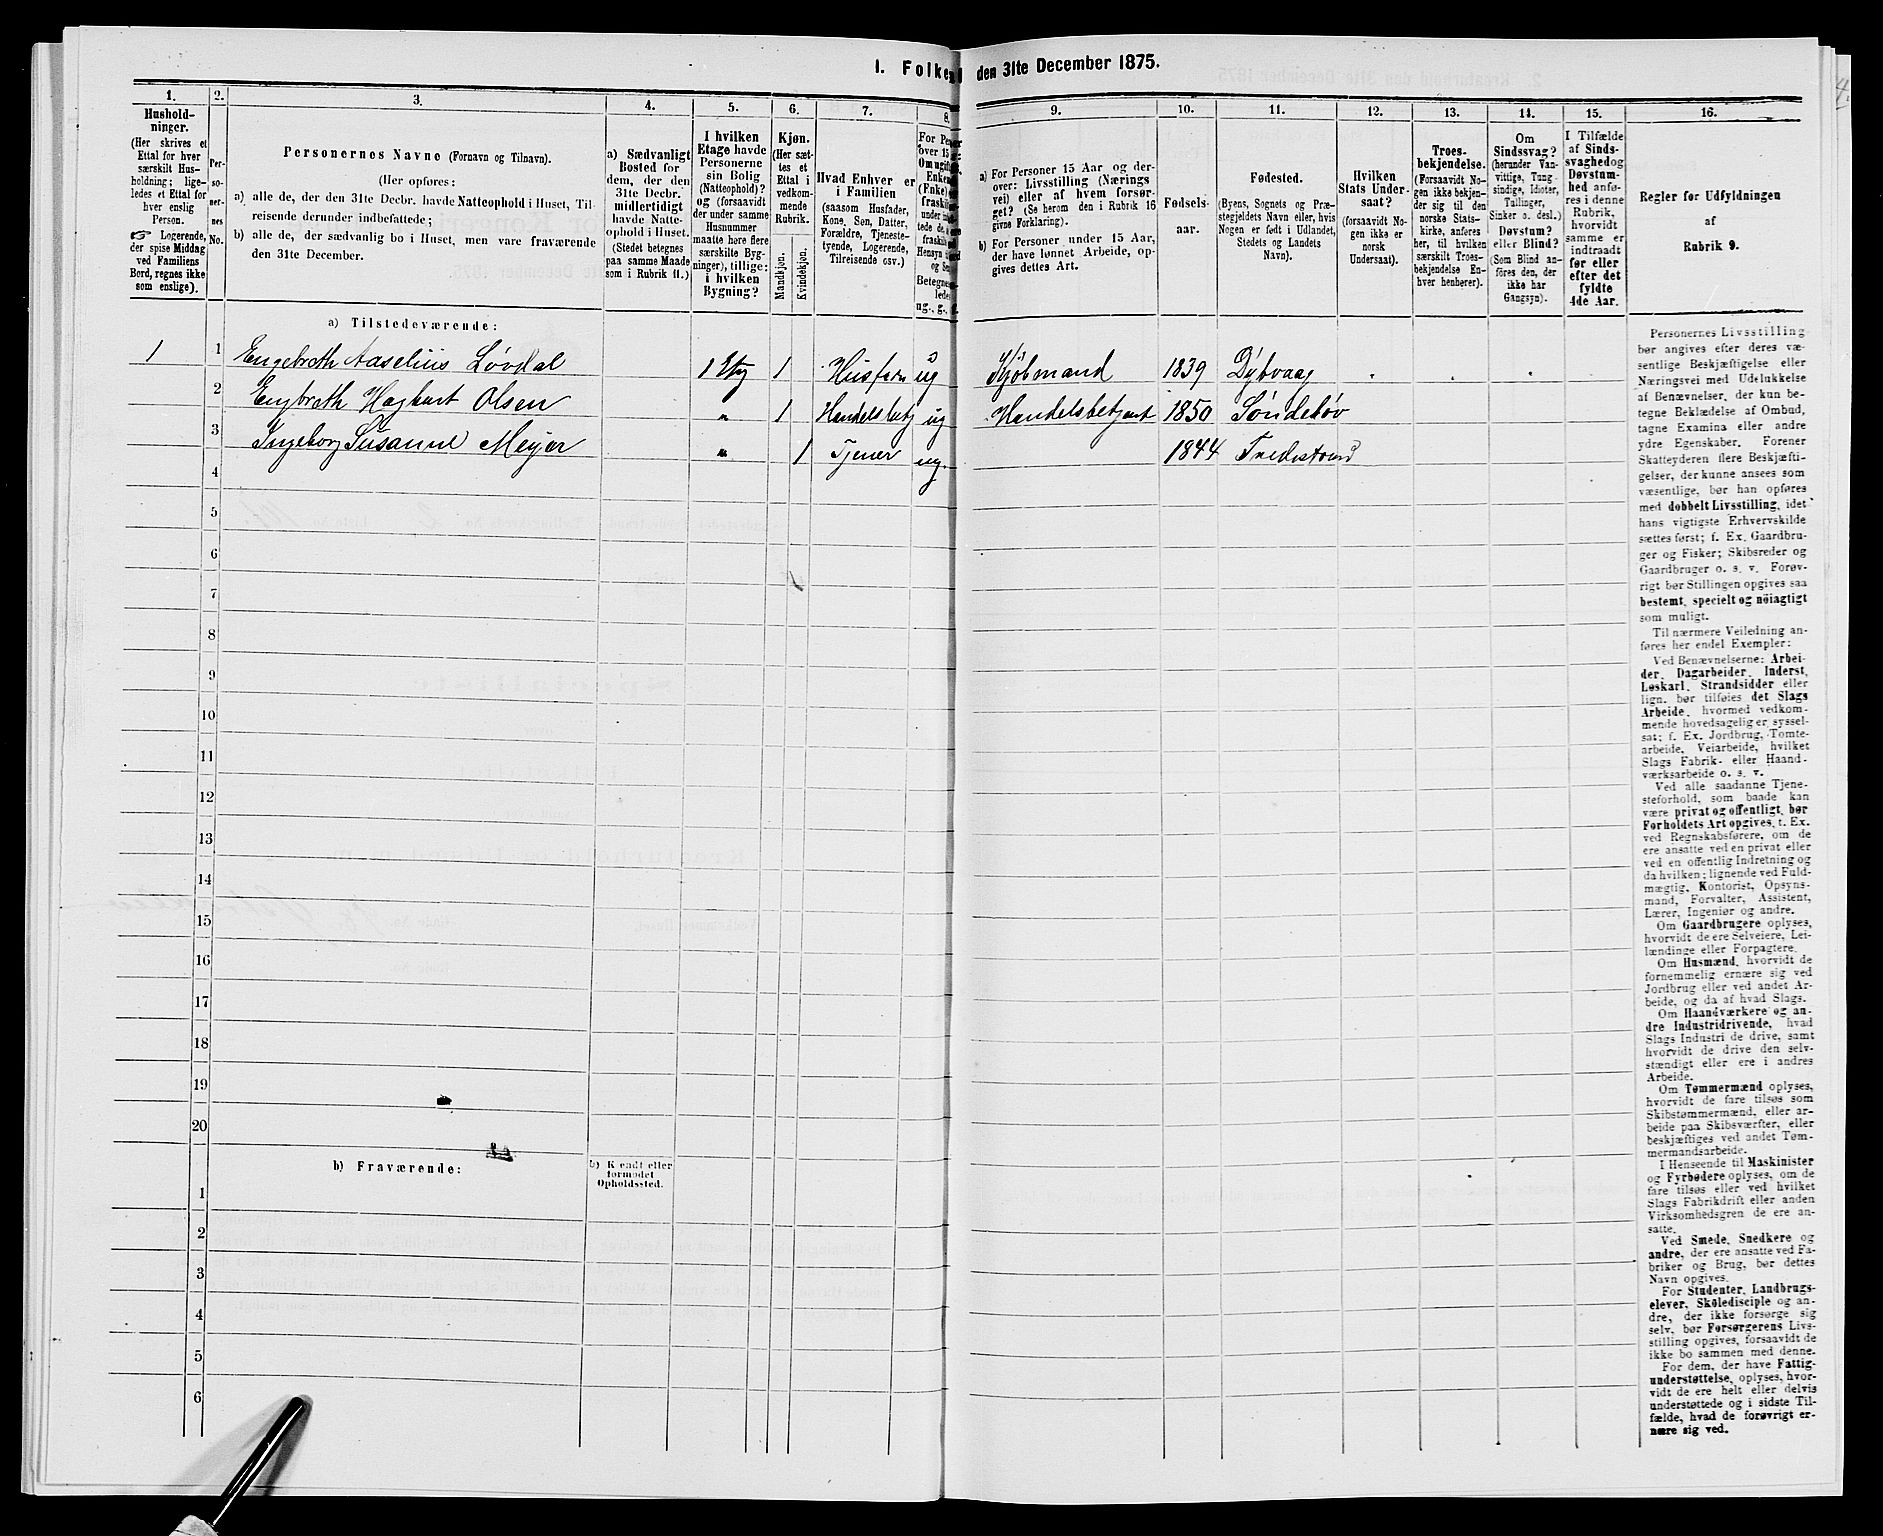 1. Folke
den 31te December 1875.
1.
2.
3.
4.
5.
6.
7.
8.
9.
10.
11.
12.
13.
14.
15.
16.
Hushold-
ninger.
(Her skrives et
Ettal for hver
særskilt Hus-
holdning; lige-
ledes et Ettal for
hver enslig
Person.
☞ Logerende,
der spise Middag
ved Familiens
Bord, regnes ikke
som enslige).
Per-
so-
ner-
nes
No.
Personernes Navne (Fornavn og Tilnavn).
(Her opføres:
a) alle de, der den 31te Decbr. havde Natteophold i Huset, Til-
reisende derunder indbefattede;
b) alle de, der sædvanlig bo i Huset, men vare fraværende
den 31te December.
a) Sædvanligt
Bosted for
dem, der den
31te Decbr.
midlertidigt
havde Natte-
ophold i Huset.
(Stedet betegnes
paa samme Maade
som i Rubrik 11.)
I hvilken
Etage havde
Personerne
sin Bolig
(Natteophold)?
og (forsaavidt
der under samme
Husnummer
maatte høre flere
særskilte Byg-
ninger), tillige:
i hvilken
Bygning?
Kjøn.
(Her sæt-
tes et
Ettal i
vedkom-
mende
Rubrik.
Mandkjøn.
Kvindekjøn.
Hvad Enhver er
i Familien
(saasom Husfader,
Kone, Søn, Datter,
Forældre, Tjeneste-
tyende, Logerende,
Tilreisende osv.)
For Pers
over 15
Om ugift
Enken
(Enke)
fraskilt
ug., g.,
a) For Personer 15 Aar og der-
over: Livsstilling (Nærings
vei) eller af hvem forsør-
get? (Se herom den i Rubrik 16
givne Forklaring).
b) For Personer under 15 Aar,
der have lønnet Arbeide, op-
gives dettes Art.
Fødsels-
aar.
Fødested.
(Byens, Sognets og Præ-
stegjeldets Navn eller, hvis
Nogen er født i Udlandet,
Stedets og Landets
Navn).
Hvilken
Stats Under-
saat?
(forsaavidt No-
gen ikke er
norsk
Undersaat).
Troes-
bekjendelse.
(Forsaavidt No-
gen ikke bekjen-
der sig til den
norske Stats-
kirke, anføres
her, til hvilken
særskilt Troes-
bekjendelse En-
hver henhører).
Om
Sindssvag?
(herunder Van-
vittige, Tung-
sindige, Idioter,
Tullinger,
Sinker o. desl.)
Døvstum?
eller Blind?
(Som Blind an-
føres den, der
ikke har
Gangsyn).
I Tilfælde
af Sinds-
svaghed og
Døvstum-
hed anfø-
res i denne
Rubrik,
hvorvidt
samme er
indtraadt
før eller
efter det
fyldte
4de Aar.
Regler før Udfyldningen
af
Rubrik 9.
a) Tilstedeværende:
1 1 Engebreth Aaselius Løvdal 1 Etg 1 Husfar ug Kjøbmand 1839 Dybvaag
2 Engbreth Hagbart Olsen " 1 Handelsbetj ug Handelsbetjent 1850 Søndeløv
3 Ingeborg Susanne Meijer " 1 Tjener ug. 1844 Tvedestrand
4
5
6
7
8
9
10
11
12
13
14
15
16
17
18
19
20
b) Fraværende:
b) Kjendt eller
formodet
Opholdssted.
1
2
3
4
5
6
Personernes Livsstilling
bør angives efter deres væ-
sentlige Beskjæftigelse eller
Næringsvei med Udelukkelse
af Benævnelser, der kun be-
tegne Beklædelse af Ombud,
tagne Examina eller andre
ydre Egenskaber. Forener
Skatteyderen flere Beskjæfti-
gelser, der kunne ansees som
væsentlige, bør han opføres
med dobbelt Livsstilling, idet
hans vigtigste Erhvervskilde
sættes først; f. Ex. Gaardbru-
ger og Fisker; Skibsreder og
Gaardbruger o. s. v. Forøv-
rigt bør Stillingen opgives saa
bestemt, specielt og nøiagtigt
som muligt.
Til nærmere Veiledning an-
føres her endel Exempler:
Ved Benævnelserne: Arbei-
der, Dagarbeider, Inderst,
Løskarl, Strandsidder eller
lign. bør tilføies det Slags
Arbeide, hvormed vedkom-
mende hovedsagelig er syssel-
sat; f. Ex. Jordbrug, Tomte-
arbeide, Veiarbeide, hvilket
Slags Fabrik- eller Haand-
værksarbeide o. s. v.
Ved alle saadanne Tjene-
steforhold, som baade kan
være privat og offentligt, bør
Forholdets Art opgives, t. Ex.
ved Regnskabsførere, om de
ere ansatte ved en privat eller
ved en offentlig Indretning og
da hvilken; lignende ved Fuld-
mægtig, Kontorist, Opsyns-
mand, Forvalter, Assistent,
Lærer, Ingeniør og andre.
Om Gaardbrugere oplyses,
hvorvidt de ere Selveiere, Lei-
lændinge eller Forpagtere.
Om Husmænd, hvorvidt de
fornemmelig ernære sig ved
Jordbrug eller ved andet Ar-
beide, og da af hvad Slags.
Om Haandværkere og an-
dre Industridrivende, hvad
Slags Industri de drive, samt
hvorvidt de drive den selv-
stændigt eller ere i andres
Arbeide.
Om Tømmermænd oplyses,
hvorvidt de fare tilsøs som
Skibstømmermænd, eller ar-
beide paa Skibsværfter, eller
beskjæftiges ved andet Tøm-
mermandsarbeide.
I Henseende til Maskinister
og Fyrbødere oplyses, om de
fare tilsøs eller ved hvilket
Slags Fabrikdrift eller anden
Virksomhedsgren de ere an-
satte.
Ved Smede, Snedkere og
andre, der ere ansatte ved Fa-
briker og Brug, bør dettes
Navn opgives.
For Studenter, Landbrugs-
elever, Skoledisciple og an-
dre, der ikke forsørge sig
selv, bør Forsørgerens Livs-
stilling opgives, forsaavidt de
ikke bo sammen med denne.
For dem, der have Fattig-
understøttelse, oplyses, hvor-
vidt de ere helt eller delvis
understøttede og i sidste Til-
fælde, hvad de forøvrigt er-
nære sig ved.